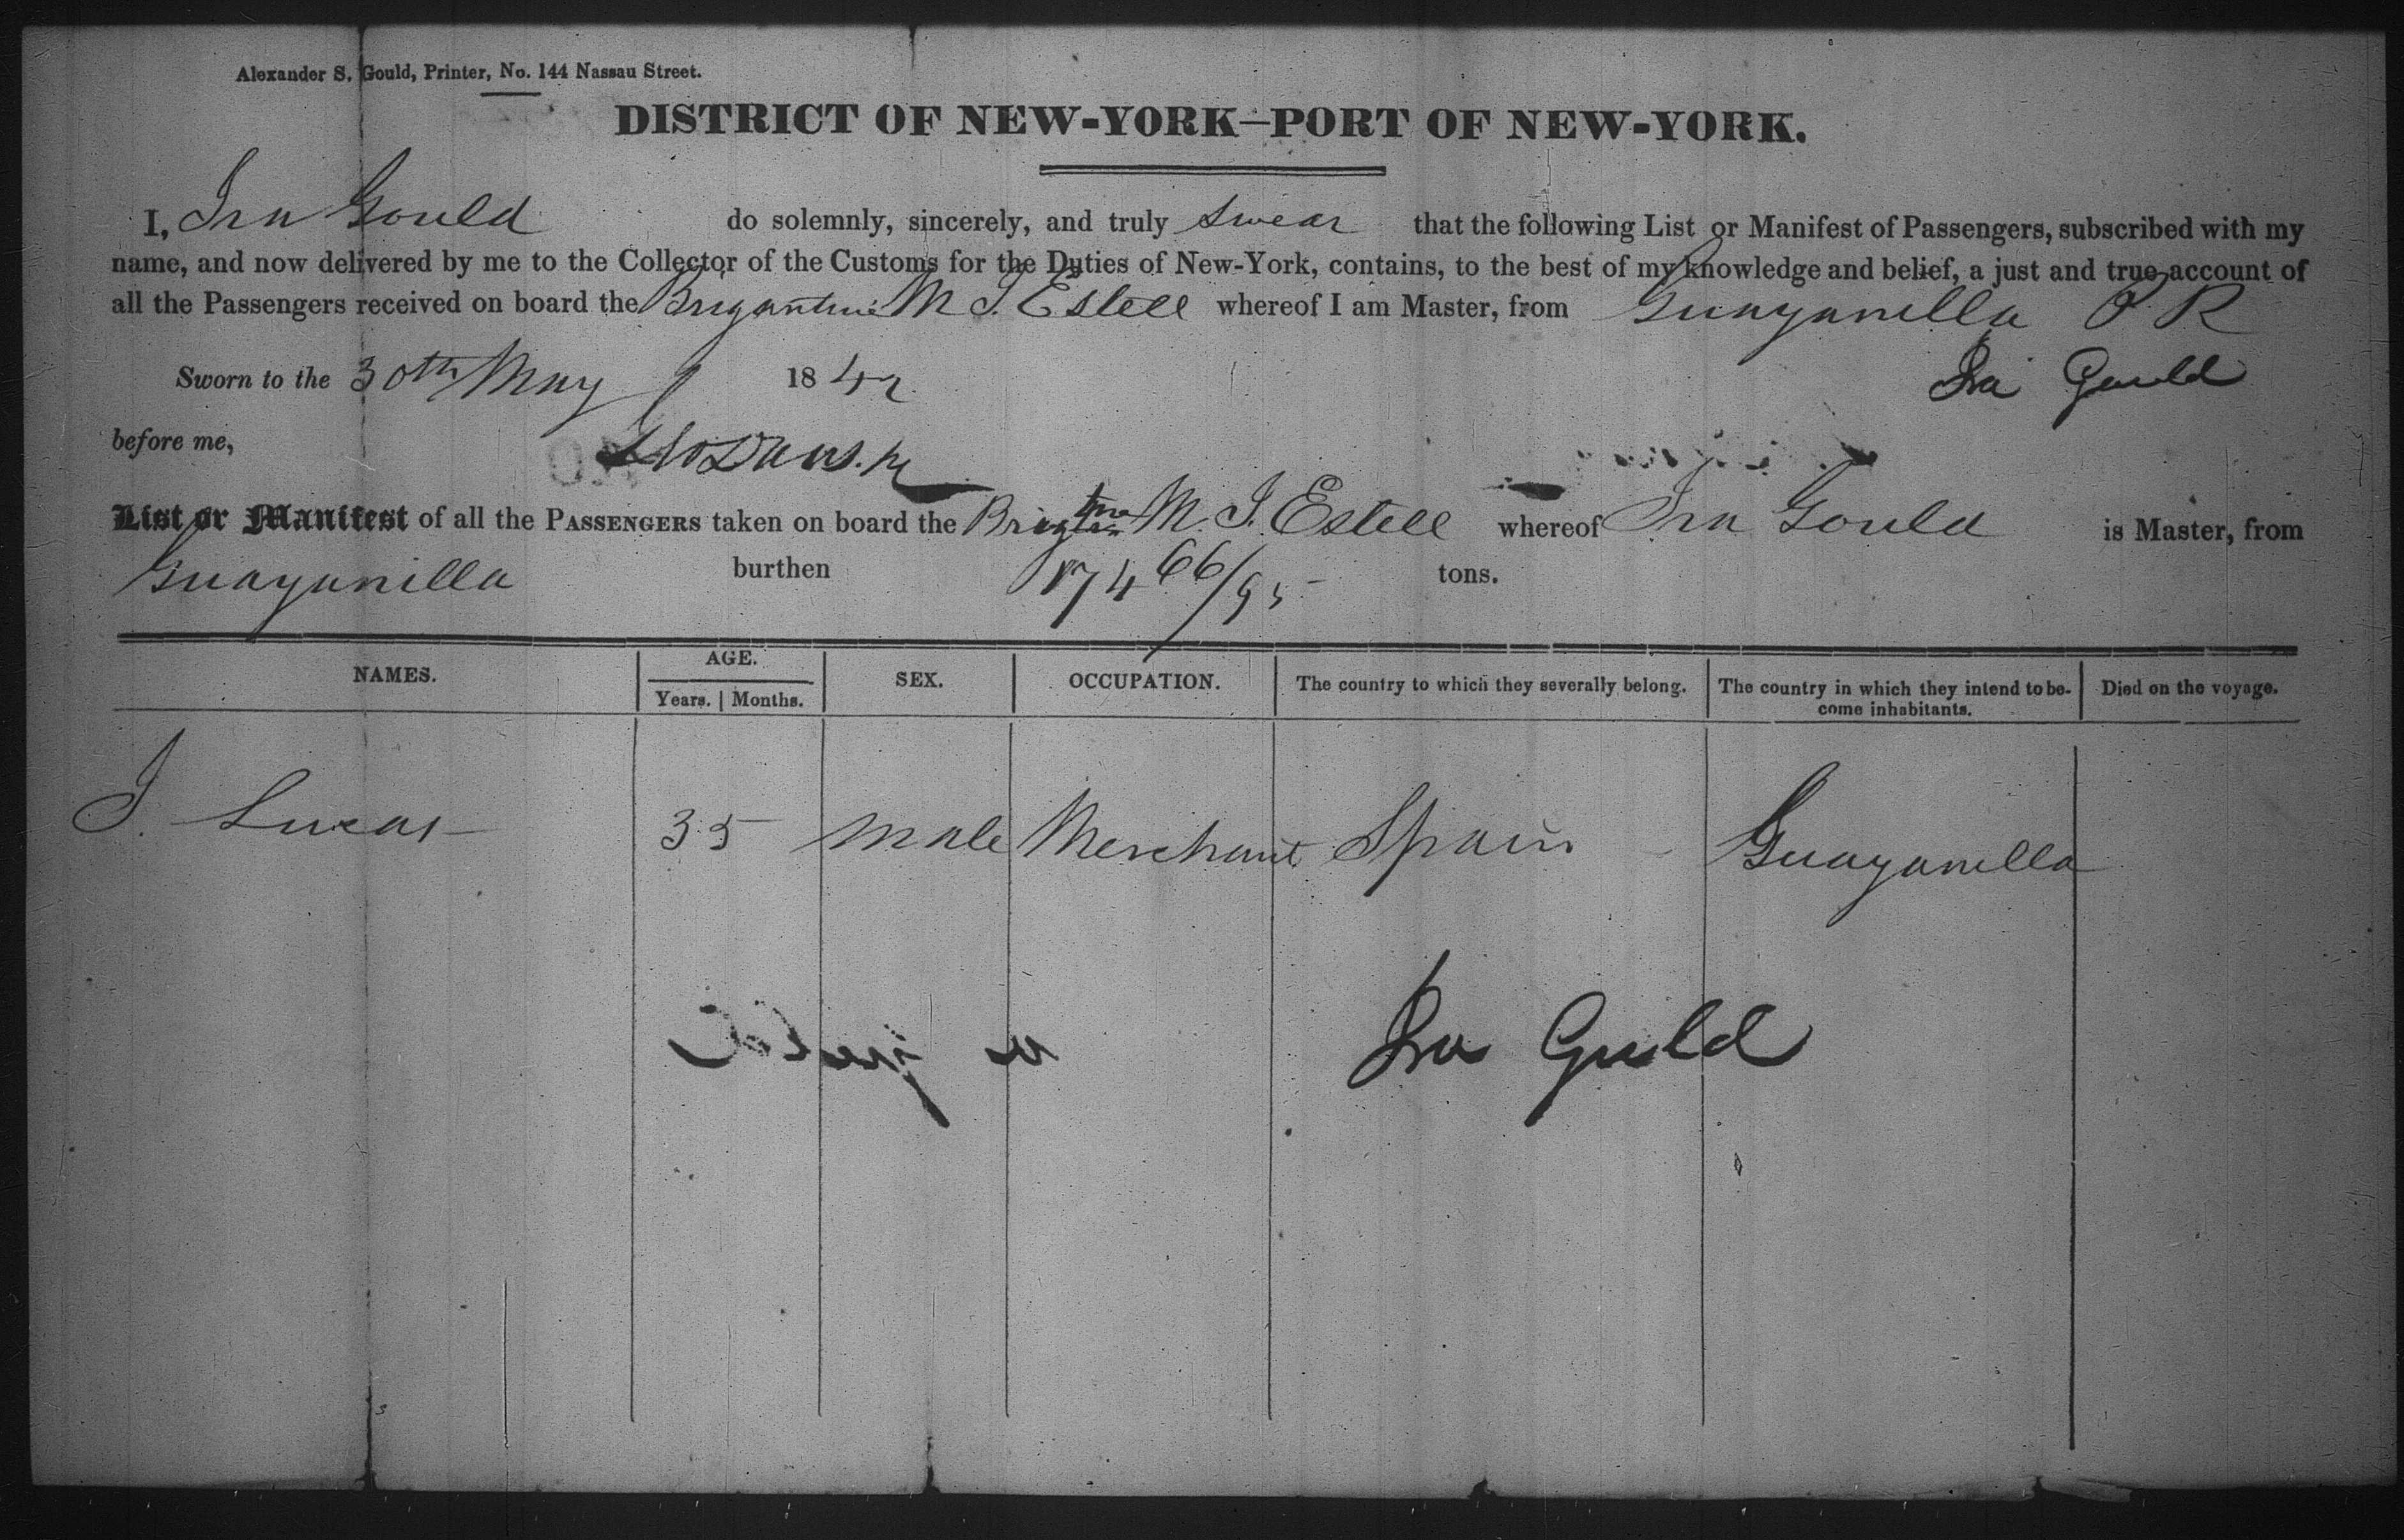 Alexander S. Gould, Printer, No. 144 Nassau Street.
DISTRICT OF NEW-YORK—PORT OF NEW-YORK.
I, Ira Gould do solemnly, sincerely, and truly swear that the following List or Manifest of Passengers, subscribed with my
name, and now delivered by me to the Collector of the Customs for the Duties of New-York, contains, to the best of my knowledge and belief, a just and true account of
all the Passengers received on board the Brigantine M J. Estell whereof I am Master, from Guayanilla P R
Sworn to the 30th May 1842 Ira Gould
before me,
List or Manifest of all the PASSENGERS taken on board the M. J. Estell whereof Ira Gould is Master, from
Guayanilla burthen 174 66/95 tons.
NAMES. AGE. SEX. OCCUPATION. The country to which they severally belong. The country in which they intend to be- Died on the voyage.
Years. Months. come inhabitants.
J. Lucas 35 male Merchant Spain Guayanilla
Ira Gould